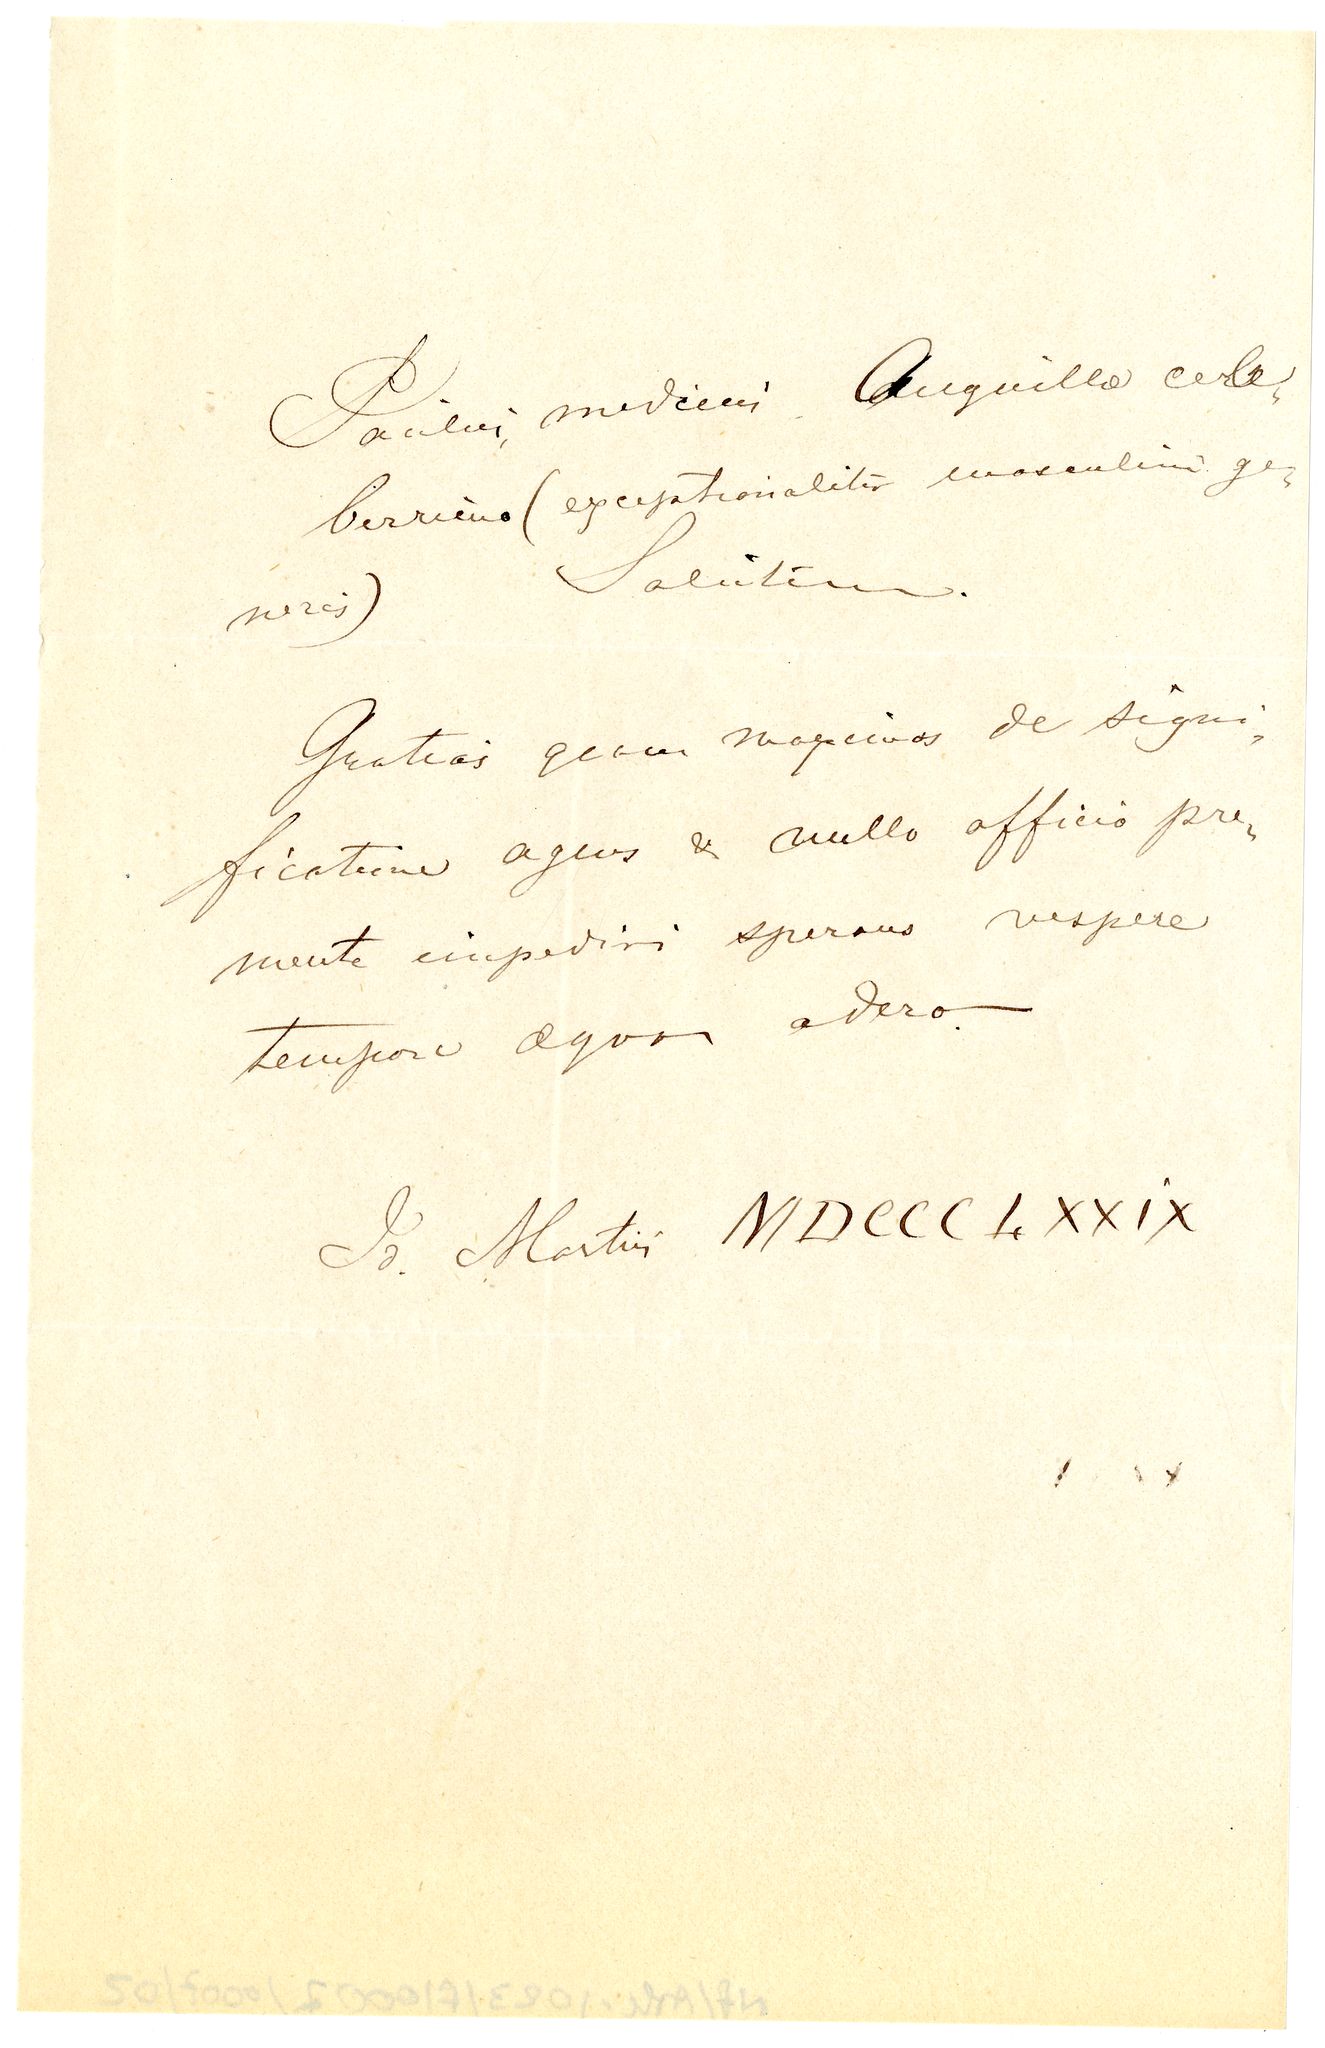 Paulus, medicus Anguillæ cele-
berrimo (exceptionaliter masculini ge-
neris) Salutem.
Gratias quam maximas de signi-
ficatione agens & nullo officio pre-
mente impediri sperans vespere
tempore æquo adero.
Martii MDCCCLXXIX